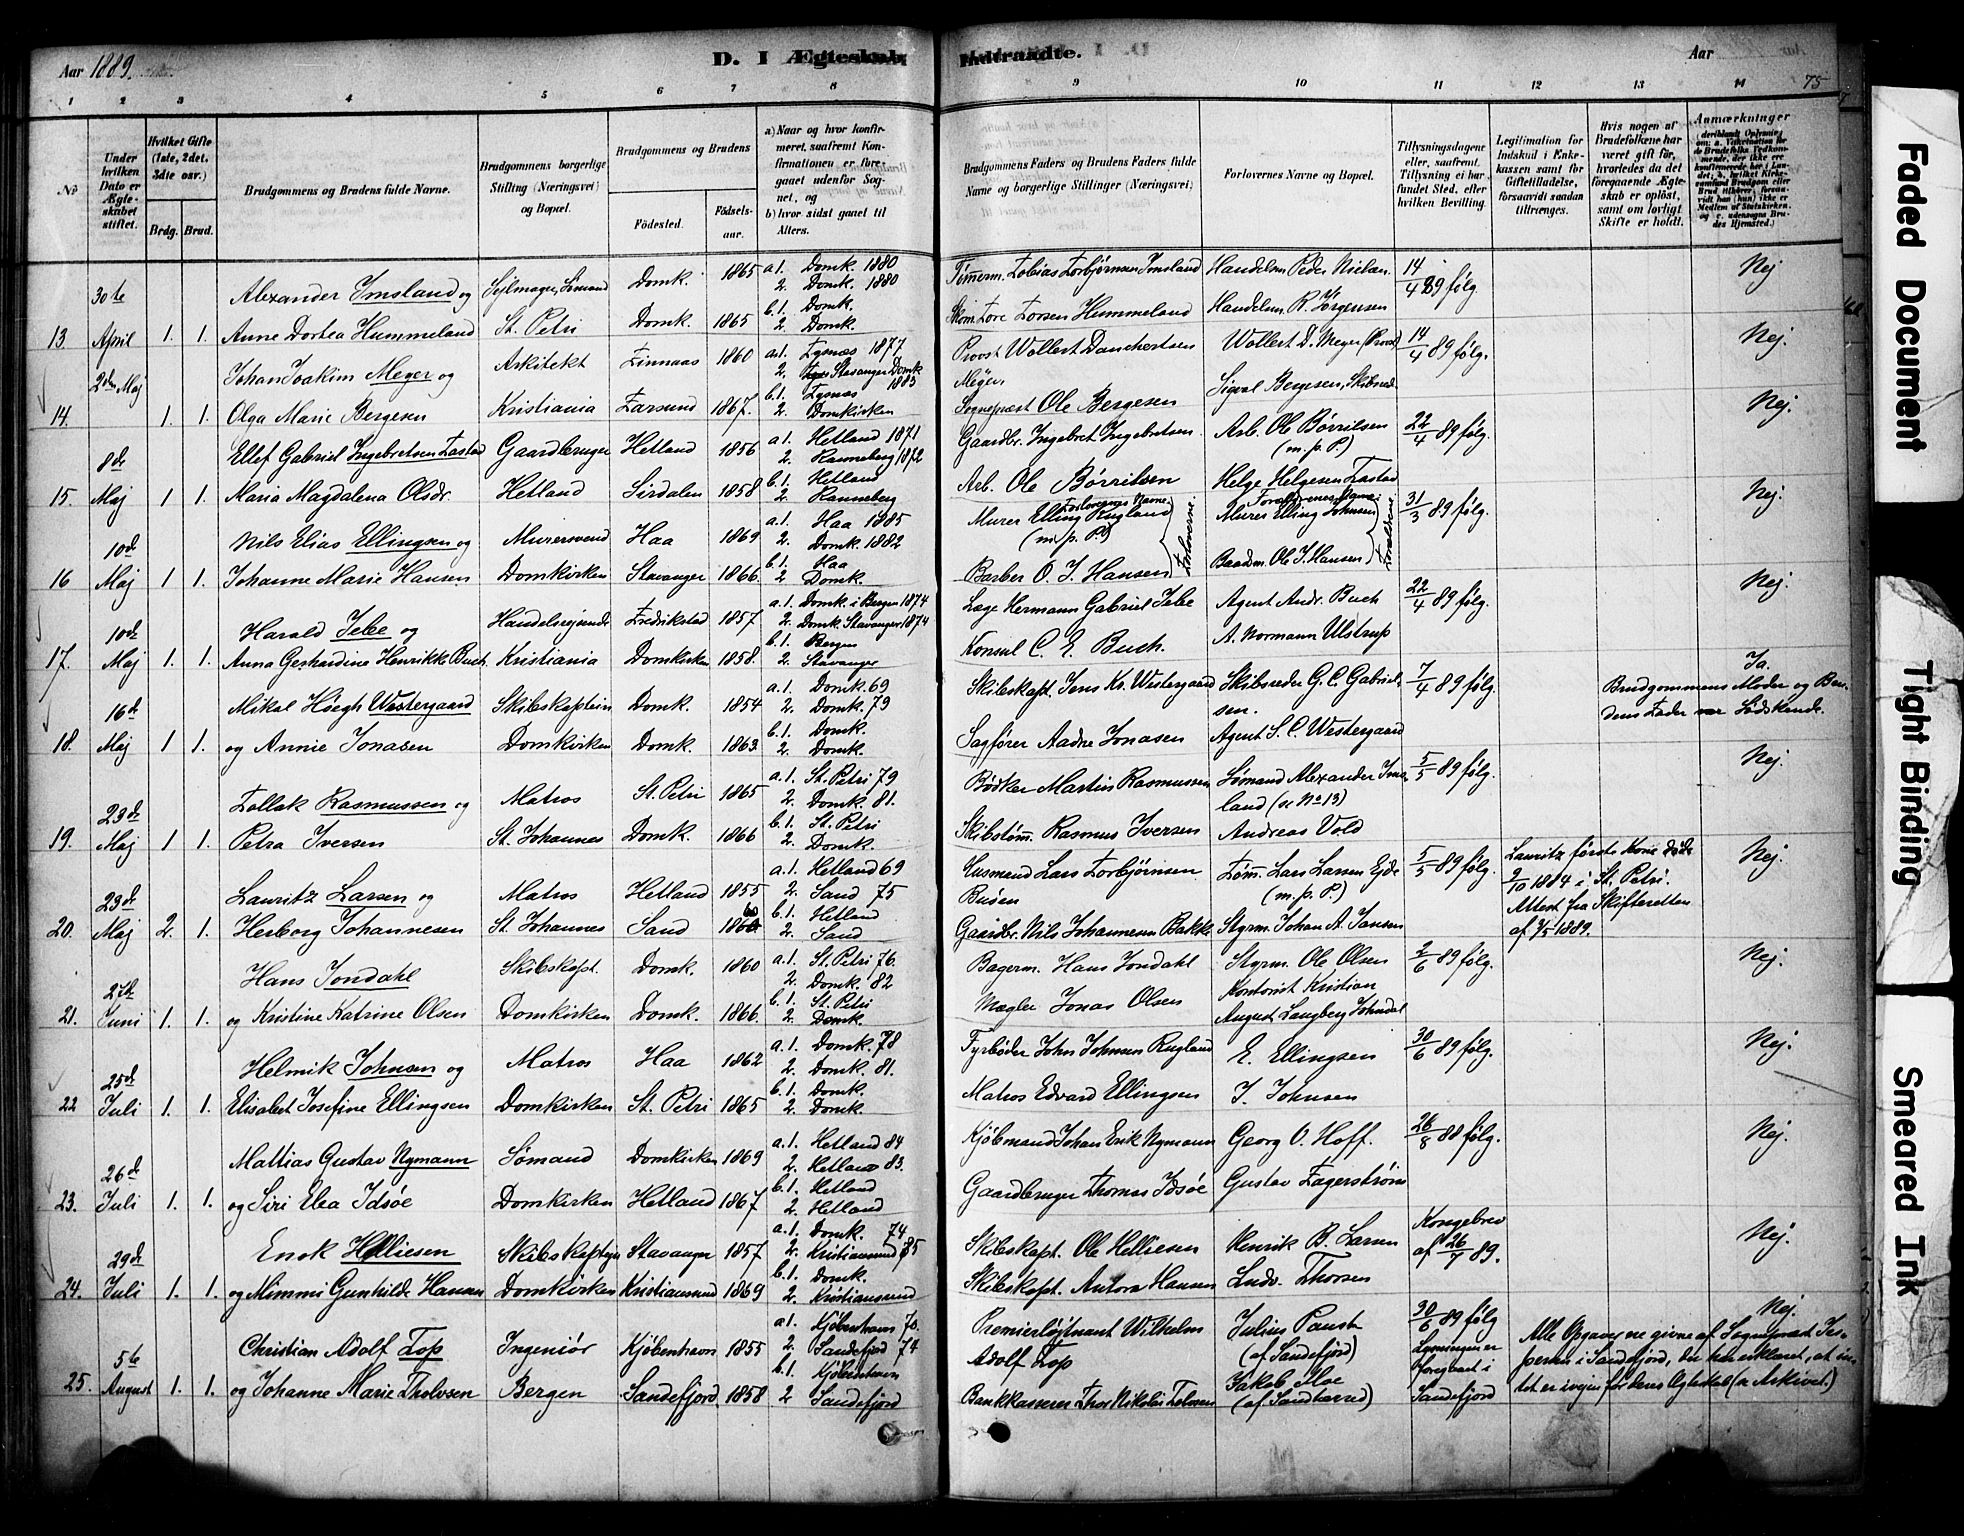 Aar 1889.
D. I Ægteskab
Indtraadte.
Aar
75
1 2 3 4 5 6 7 8 9 10 11 12 13 14
No
Under hvilken Dato er Ægteskabet stiftet.
Hvilket Gifte (1ste, 2det, 3die osv.)
Brdg. Brud.
Brudgommens og Brudens fulde Navne.
Brudgommens borgerlige Stilling (Næringsvei) og Bopæl.
Brudgommens og Brudens
Fødested.
Fødselsaar.
a) Naar og hvor konfirmeret, saafremt Konfirmationen er foregaaet udenfor Sognet, og
b) hvor sidst gaaet til Alters.
Brudgommens Faders og Brudens Faders fulde Navne og borgerlige Stillinger (Næringsvei)
Forlovernes Navne og Bopæl.
Tillysningsdagene eller, saafremt Tillysning ei har fundet Sted, efter hvilken Bevilling.
Legitimation for Indskud i Enkekassen samt for Giftetilladelse, forsaavidt saadan tiltrænges.
Hvis nogen af Brudefolkene har været gift før, hvorledes da det foregaaende Ægteskab er opløst, samt om lovligt Skifte er holdt.
Anmærkninger
13. 30te April 1. 1. Alexander Imsland og Sejlmager, Sømand Domk. 1865 a.1. Domk. 1880 2. Domk. 1880 Tømerm. Tobias Torbjørnsen Imsland Handelsm. Peder Nielsen 14/4 89 følg. Nej
Anne Dortea Hummeland St. Petri Domk. 1865 b.1. Domk. 2. Domk. Skom. Tore Torsen Hummeland Handelsm. R. Jørgensen
14. 2den Maj 1. 1. Johan Joakim Meyer og Arkitekt Finnaas 1860 a.1. Fysnæs 1877 2. Stavanger Domk 1883 Provst Wollert Danckertsen Meyer Wollert D. Meyer (Provst) 14/4 89 følg. Nej.
Olga Marie Bergesen Kristiania Farsund 1867. b.1. Fysnæs 2. Domkirken Sognepræst Ole Bergesen Sigval Bergesen, Skibsred
15. 8de Maj 1 1. Ellef Gabriel Ingebretsen Tastad Gaardbruger Hetland 1856 a.1. Hetland 1871 2. Ranneberg 1872 Gaardbr. Ingebret Ingebretsen Arb. Ole Børrilsen (m. p. P.) 22/4 89 følg. Nej.
Maria Magdalena Olsdr. Hetland Sirdalen 1858 b.1. Hetland 2. Ranneberg Arb. Ole Børrilsen Helge Helgesen Tastad
16 10de Maj 1 1. Nils Elias Ellingsen og Murersvend Haa 1869 a.1. Haa 1885 2. Domk. 1882 Forlovernes Navne Murer Elling Rugland (m. p. P.) Forældrenes Navne: Murer Elling Johnsen 31/3 89 følg. Nej.
Johanne Marie Hansen Domkirken Stavanger 1866. b.1. Haa 2 Domk. Barber O. J. Hansen Forloverne. Baadsm. Ole J. Hansen Forældrene
17. 10de Maj 1. 1. Harald Jebe og Handelsrejsende Fredrikstad 1857 a.1. Domk. i Bergen 1874 2. Domk. Stavanger 1874 Læge Hermann Gabriel Jebe Agent Andr. Buch 22/4 89 følg. Nej.
Anna Gerhardine Henrikke Buch. Kristiania Domkirken 1858. b.1. Bergen 2. Stavanger Konsul C. E. Buch. A. Normann Ulstrup
18. 16de Maj 1 1. Mikal Høegh Westergaard Skibskaptein Domk. 1854 a.1. Domk. 69 2. Domk. 79 Skibskapt. Jens Kr. Westergaard Skibsreder G. C. Gabrielsen. 7/4 89 følg. Brudgommens Moder og Brudens Fader var Sødskende. Ja.
og Annie Jonasen Domkirken Domk. 1863. b.1. Domk. 2. Domk. Sagfører Aadne Jonasen Agent S. C. Westergaard
19. 23de Maj 1 1. Tollak Rasmussen og Matros St. Petri 1865 a.1. St. Petri 79 2. Domk. 81. Bødker Martin Rasmussen Sømand Alexander Imsland (se No 13) 5/5 89 følg. Nej.
Petra Iversen St. Johannes Domk. 1866 b.1. St. Petri 2. Domk. Skibstøm. Rasmus Iversen Andreas Vold
20. 23de Maj 2. 1. Lauritz Larsen og Matros Hetland 1855 a.1. Hetland 69 2. Sand 75 Husmand Lars Torbjørnsen Buøen Tøm. Lars Larsen Ejde (m. p. P.) 5/5 89 følg. Lauritz første Kone døde 9/10 1884 i St. Petri. Attest fra Skifteretten af 7/5 1889. Nej.
Herborg Johannesen St. Johannes Sand 1860 b.1. Hetland 2. Sand Gaardbr. Nils Johannesen Bakke. Styrm. Johan A. Jansen
21. 27de Juni 1. 1. Hans Jondahl Skibskapt. Domk. 1860 a.1. St. Petri 76. 2. Domk. 82 Bagerm. Hans Jondahl Styrm. Ole Olsen 2/6 89 følg. Nej.
og Kristine Katrine Olsen Domkirken Domk. 1866. b.1. St. Petri 2. Domk. Mægler Jonas Olsen Kontorist Kristian August Langberg Johndal
22 25de Juli 1. 1. Helmik Johnsen og Matros Haa 1862 a.1. Domk. 78 2. Domk. 81. Fyrbøder John Johnsen Rugland E. Ellingsen 30/6 89 følg. Nej.
Elisabet Josefine Ellingsen Domkirken St. Petri 1865 b.1. Domk. 2. Domk Matros Edvard Ellingsen J. Johnsen
23. 26de Juli 1. 1. Mattias Gustav Nymann Sømand Domkirken 1869 a.1. Hetland 84 2. Hetland 83. Kjøbmand Johan Erik Nymann Georg O. Hoff. 26/8 88 følg. Nej.
og Siri Elea Idsøe Domkirken Hetland 1867 b.1. Hetland 2. Hetland Gaardbruger Thomas Idsøe Gustav Fagerstrøm
24. 29de Juli 1. 1. Enok Helliesen Skibskaptejn Stavanger 1857 a.1. Domk. 74 2. Kristiansund 85 Skibskapt. Ole Helliesen Henrik B. Larsen Kongebrev af 26/7 89. Nej.
og Mimmi Gunhilde Hansen Domkirken Kristiansund 1869 b.1. Domk. 2. Kristiansund Skibskapt. Antora Hansen Ludv. Thorsen
25. 5te August 1. 1. Christian Adolf Top Ingeniør Kjøbenhavn 1855 a.1. Kjøbenhavn 70. 2. Sandefjord 74 Premierløjtnant Wilhelm Adolf Top Julius Paust (af Sandefjord) 30/6 89 følg Lysningen er foregaaet i Sandefjord Alle Opgaver ere givne af Sognepræst Jespersen i Sandefjord, der har erklæret, at intet er ivejen for deres Ægteskab (se Arkivet.) Nej.
og Johanne Marie Tholvsen Bergen Sandefjord 1858 b.1. Kjøbenhavn 2 Sandefjord Bankkasserer Thor Nikolai Tolvsen Jakob Moe (af Sandharred)
Faded Document
Tight Binding
Smeared Ink